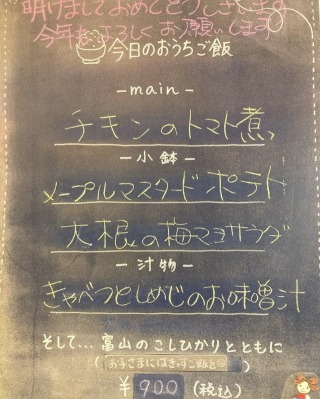 明けましておめでとうございます
今年もよろしくお願いします
今日のおうちご飯
-main-
チキンのトマト煮
-小鉢-
メープルマスタードポテト
大根の梅マヨサラダ
-汁物-
きゃべつとしめじのお味噌汁
そして…富山のこしひかりとともに
(お子さまにはきずご飯を)
¥900(税込)